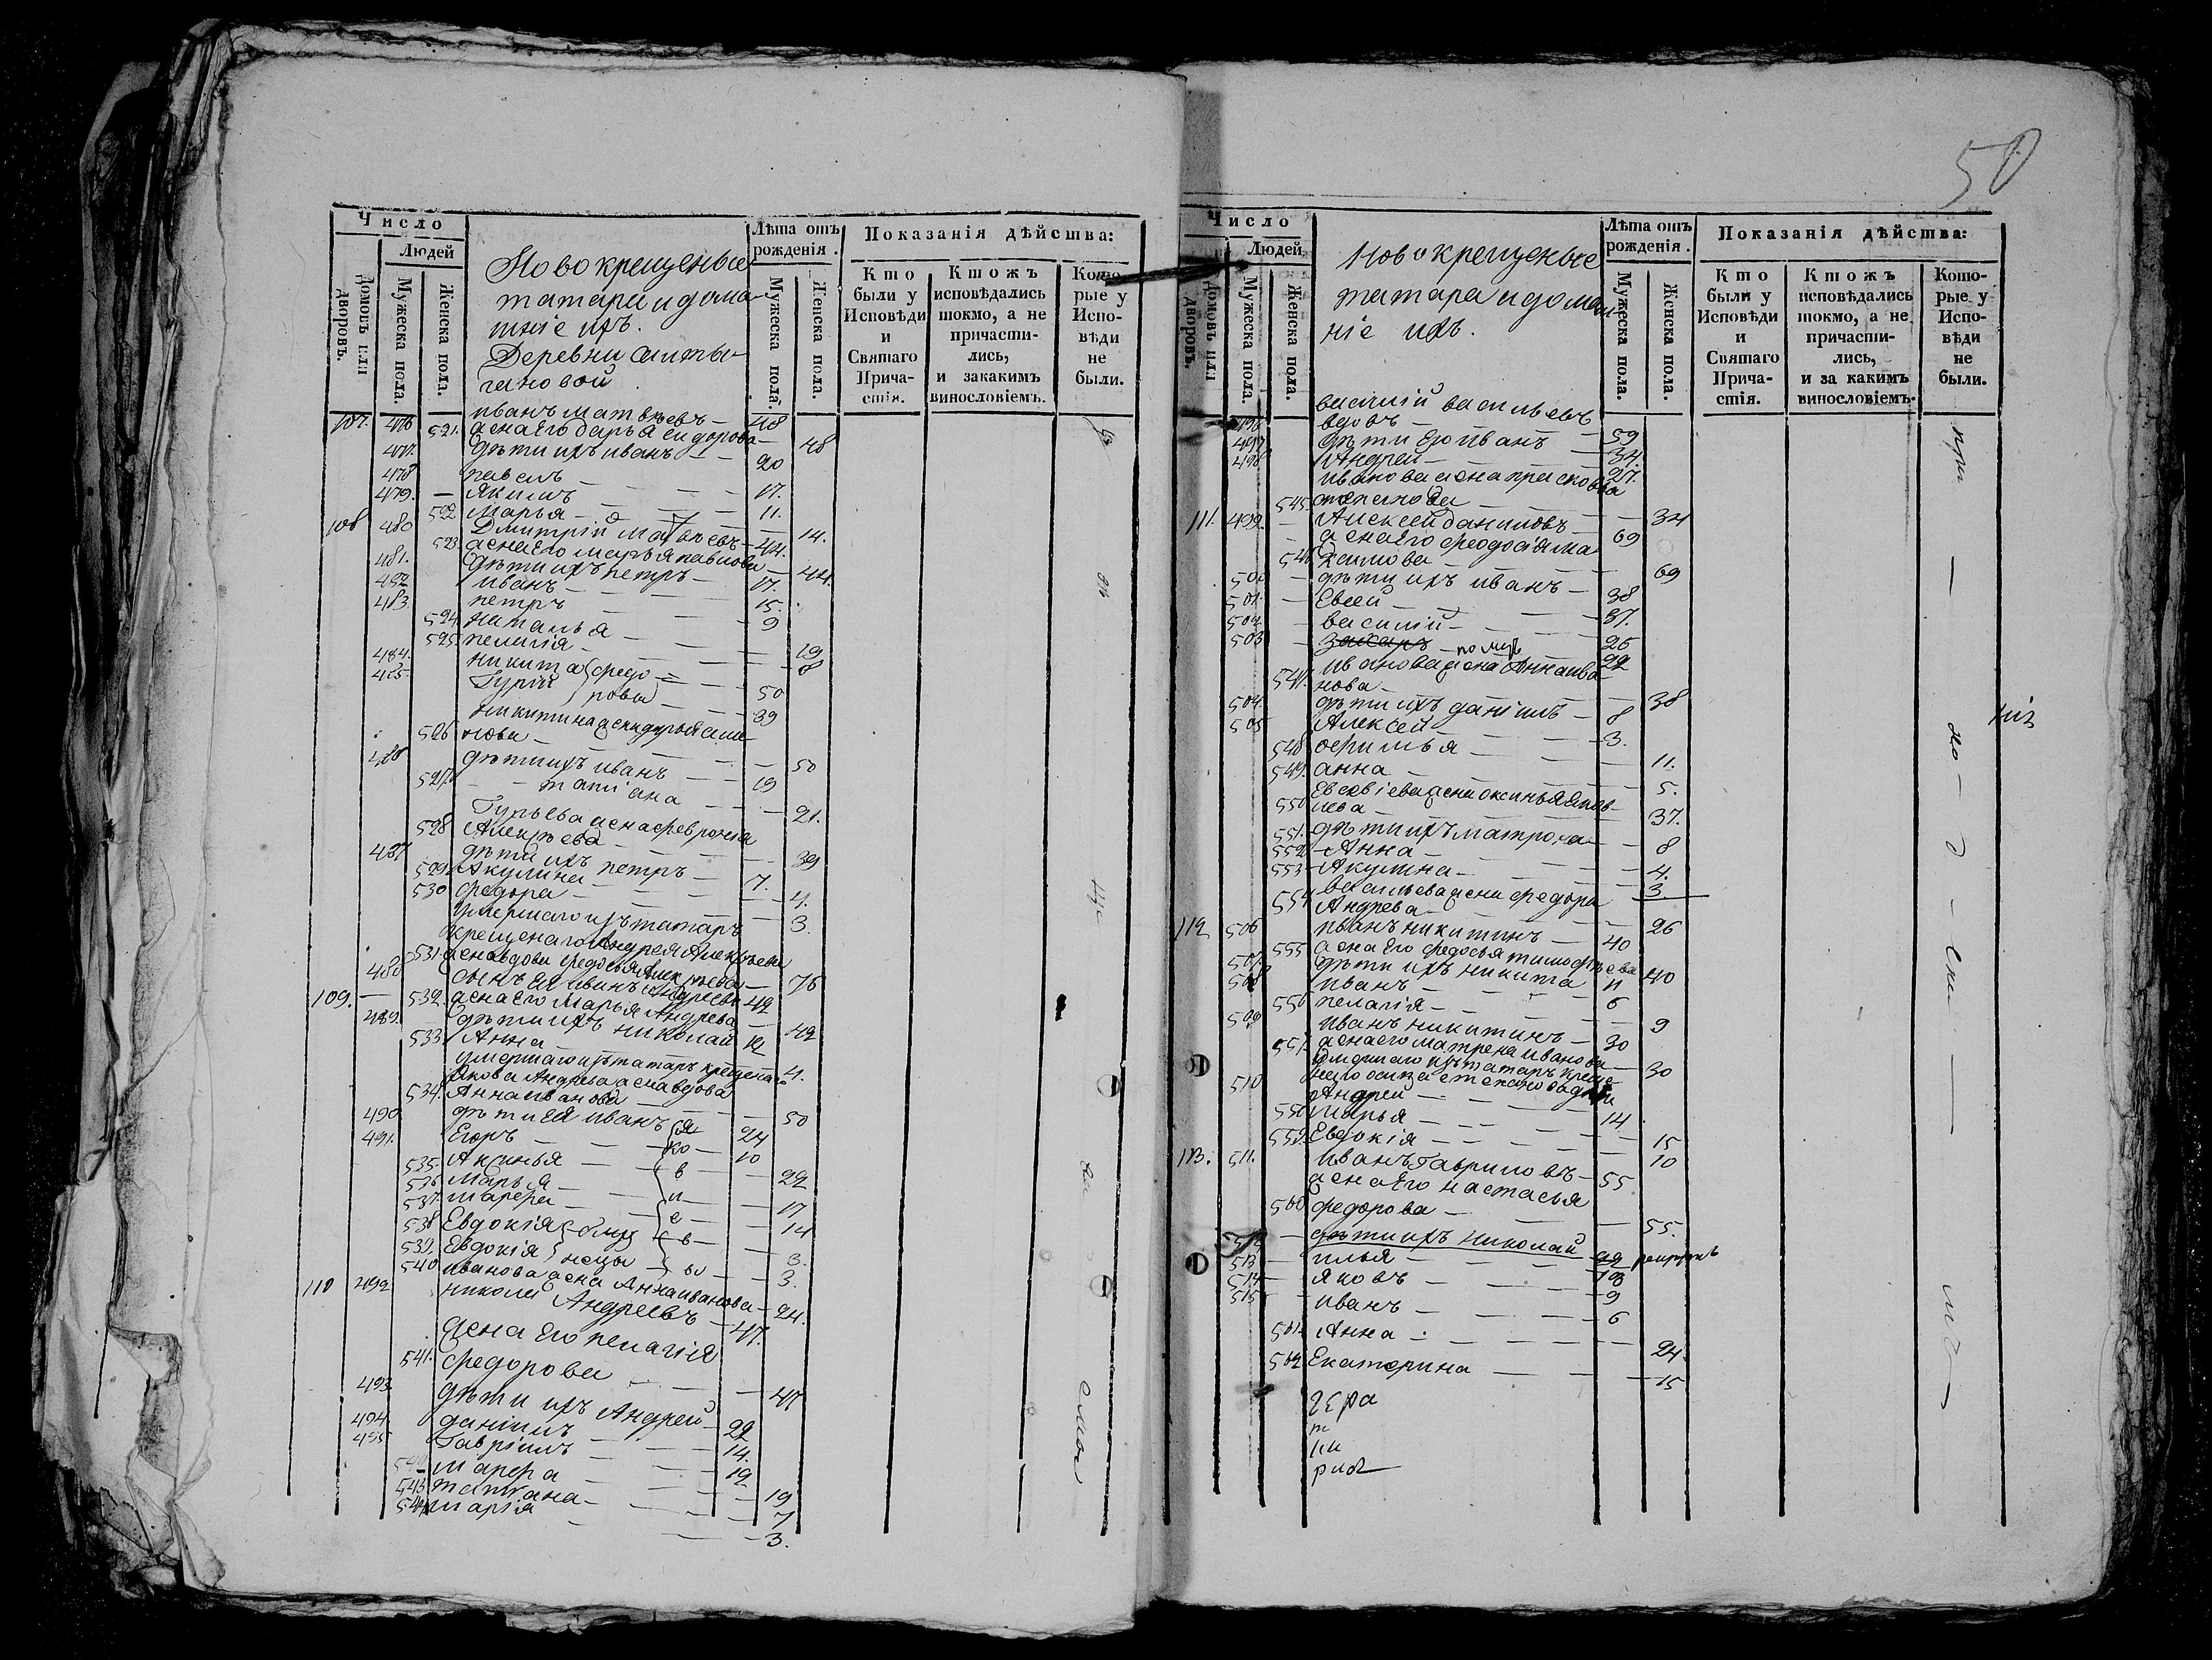 50
Число
Людей
Домовъ или дворовъ.
Мужеска пола.
Женска пола.
Новокрещеные
татара и дома-
шніе ихъ.
Деревни
Лѣта отъ рожденія.
Мужеска пола.
Женска пола.
Показанія дѣйства:
Кто были у Исповѣди и Святаго Причастія.
Ктожъ исповѣдались токмо, а не причастились, и закакимъ винословіемъ.
Которые у Исповѣди не были.
107. 476 Иванъ Матвѣевъ — 48
521. жена Его дарья сидорова — 48
477. дѣти ихъ иванъ — — 20
478 павелъ — — — 17.
479. — Якимъ — — — 11.
522 Марья — — — 14.
108 480 Дмитрій Матвѣевъ — 44.
523. жена Его марья павлова — 44.
481. дѣти ихъ петръ — 17.
482 иванъ — — — 15.
483. петръ — — — 9
524. наталья — — — 19
525. пелагія — — — 8
484. никита федо — — 50
485. Гурій рова — — 39
никитина жена
526 нова — — — 50
486 дѣти ихъ иванъ — — 19
527. — — татіана — — — 21.
Гурьева жена февронія
528 Алексѣева — — — 39
487 дѣти ихъ петръ — 7.
529. Акулина — — — 4.
530 федора — — — 3.
умершаго изъ татаръ
крещенаго Андрея Алексѣева
531. жена вдова федосья Алексѣева — 76
109. — 488 сынъ Ея иванъ Андреевъ 42
532. жена Его Марья Андрева — 42
489. дѣти ихъ николай 12
533. Анна — — — 4.
умершаго изъ татаръ крещенаго
Якова Андрева жена вдова
534. Анна иванова — — — 50
490. дѣти Ея иванъ Я — 24
491. Егоръ — — — ко — 10
535. Аксинья — — в — 22
536 Марья — — л — 17
537. марфа — — е — 14
538 Евдокія близ — в — 3.
539. Евдокія нецы — ы — 3.
540 иванова жена Анна иванова — 24.
110 492 николай Андреевъ — 47.
жена Его пелагія
541. федорова — — — 47
493. дѣти ихъ Андрей — 22
494. даніилъ — — — 14.
495 Гавріилъ — — — 12
542 марфа — — — 19
543. татіана — — — 7
544. марія — — — 3.
Число
Людей
Домовъ или дворовъ.
Мужеска пола.
Женска пола.
Новокрещеные
татара и домаш-
ніе ихъ.
Лѣта отъ рожденія.
Мужеска пола.
Женска пола.
Показанія дѣйства:
Кто были у Исповѣди и Святаго Причастія.
Ктожъ исповѣдались токмо, а не причастились, и за какимъ винословіемъ.
Которые у Исповѣди не были.
василій васильевъ
496 вдовъ — — 59
497 дѣти Его иванъ — 34.
498 Андрей — — — 27.
иванова жена прасковья
545. степанова — — — 34
111. 499. — Алексей даниловъ — 69
жена Его феодосія ма-
546 ксимова — — — 69
500 — дѣти ихъ иванъ — 38
501. — Евсей — — — 37.
502. — василій — — — 26
503 — захаръ — помре 22
иванова жена Анна ива-
547. нова — — — 38
504. дѣти ихъ даніилъ — 8
505 Алексей — — — 3.
548 офимья — — — 11.
549. анна — — — 5.
Евсевіева жена оксинья
550 лева — — — 37.
551. дѣти ихъ матрона — — 8
552 — Анна — — — 4.
553 — Акулина — — — 3.
васильева жена федора
554 Андрева — — — 26
112 506 иванъ никитинъ — 40
555 жена Его федосья тимофѣева 40
507. дѣти ихъ никита 11
508 иванъ — — — 6
556 пелагія — — — 9
509 иванъ никитинъ — 30
557. жена его матрена иванова — 30
умершаго изъ татаръ креще-
наго осипа степанова дѣти
510 Андрей — — — 14
558 Марья — — — 15
559. Евдокія — — — 10
113. 511. иванъ Гавриловъ — 55
жена Его настасья
560 федорова — — — 55.
512 — дѣти ихъ николай 22 рекрутъ
513 — илья — — — 18
514 — яковъ — — — 9
515 — иванъ — — — 6
561. Анна — — — 24.
562 Екатерина — — — 15